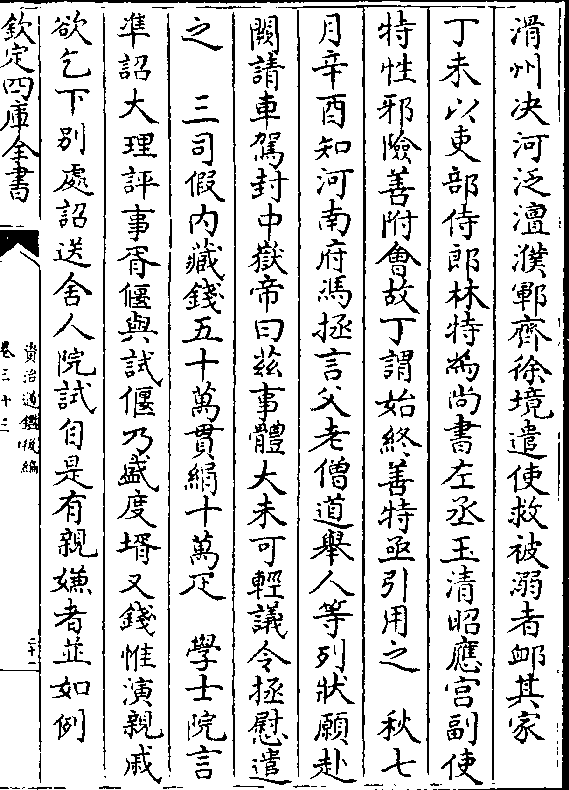 滑州决河泛澶濮鄆齊徐境遣使救被溺者䘏其家
丁未以吏部侍郎林特為尚書左丞玉清昭應宫副使
特性邪險善附會故丁謂始終善特亟引用之　秋七
月辛酉知河南府馮拯言父老僧道舉人等列狀願赴
闕請車駕封中嶽帝曰兹事體大未可輕議令拯慰遣
之　三司假内藏錢五十萬貫絹十萬疋　學士院言
準詔大理評事胥偃與試偃乃盛度壻又錢惟演親戚
欲乞下别處詔送舍人院試自是有親嫌者並如例
欽定四庫全書
資治通鑑後編
卷三十三